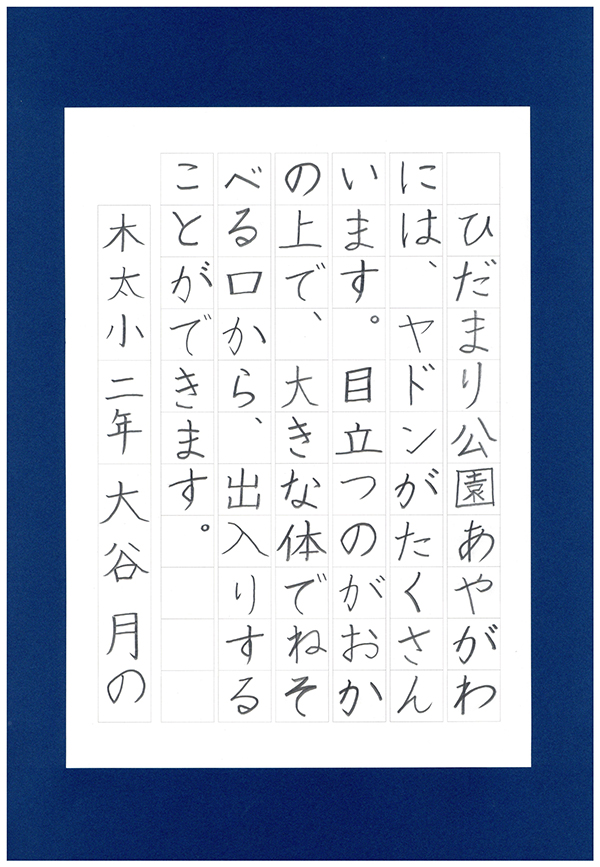 ひだまり公園あやがわ
には、ヤドンがたくさん
います。目立つのがおか
の上で、大きな体でねそ
べる口から、出入りする
ことができます。
木太小 二年 大谷 月の